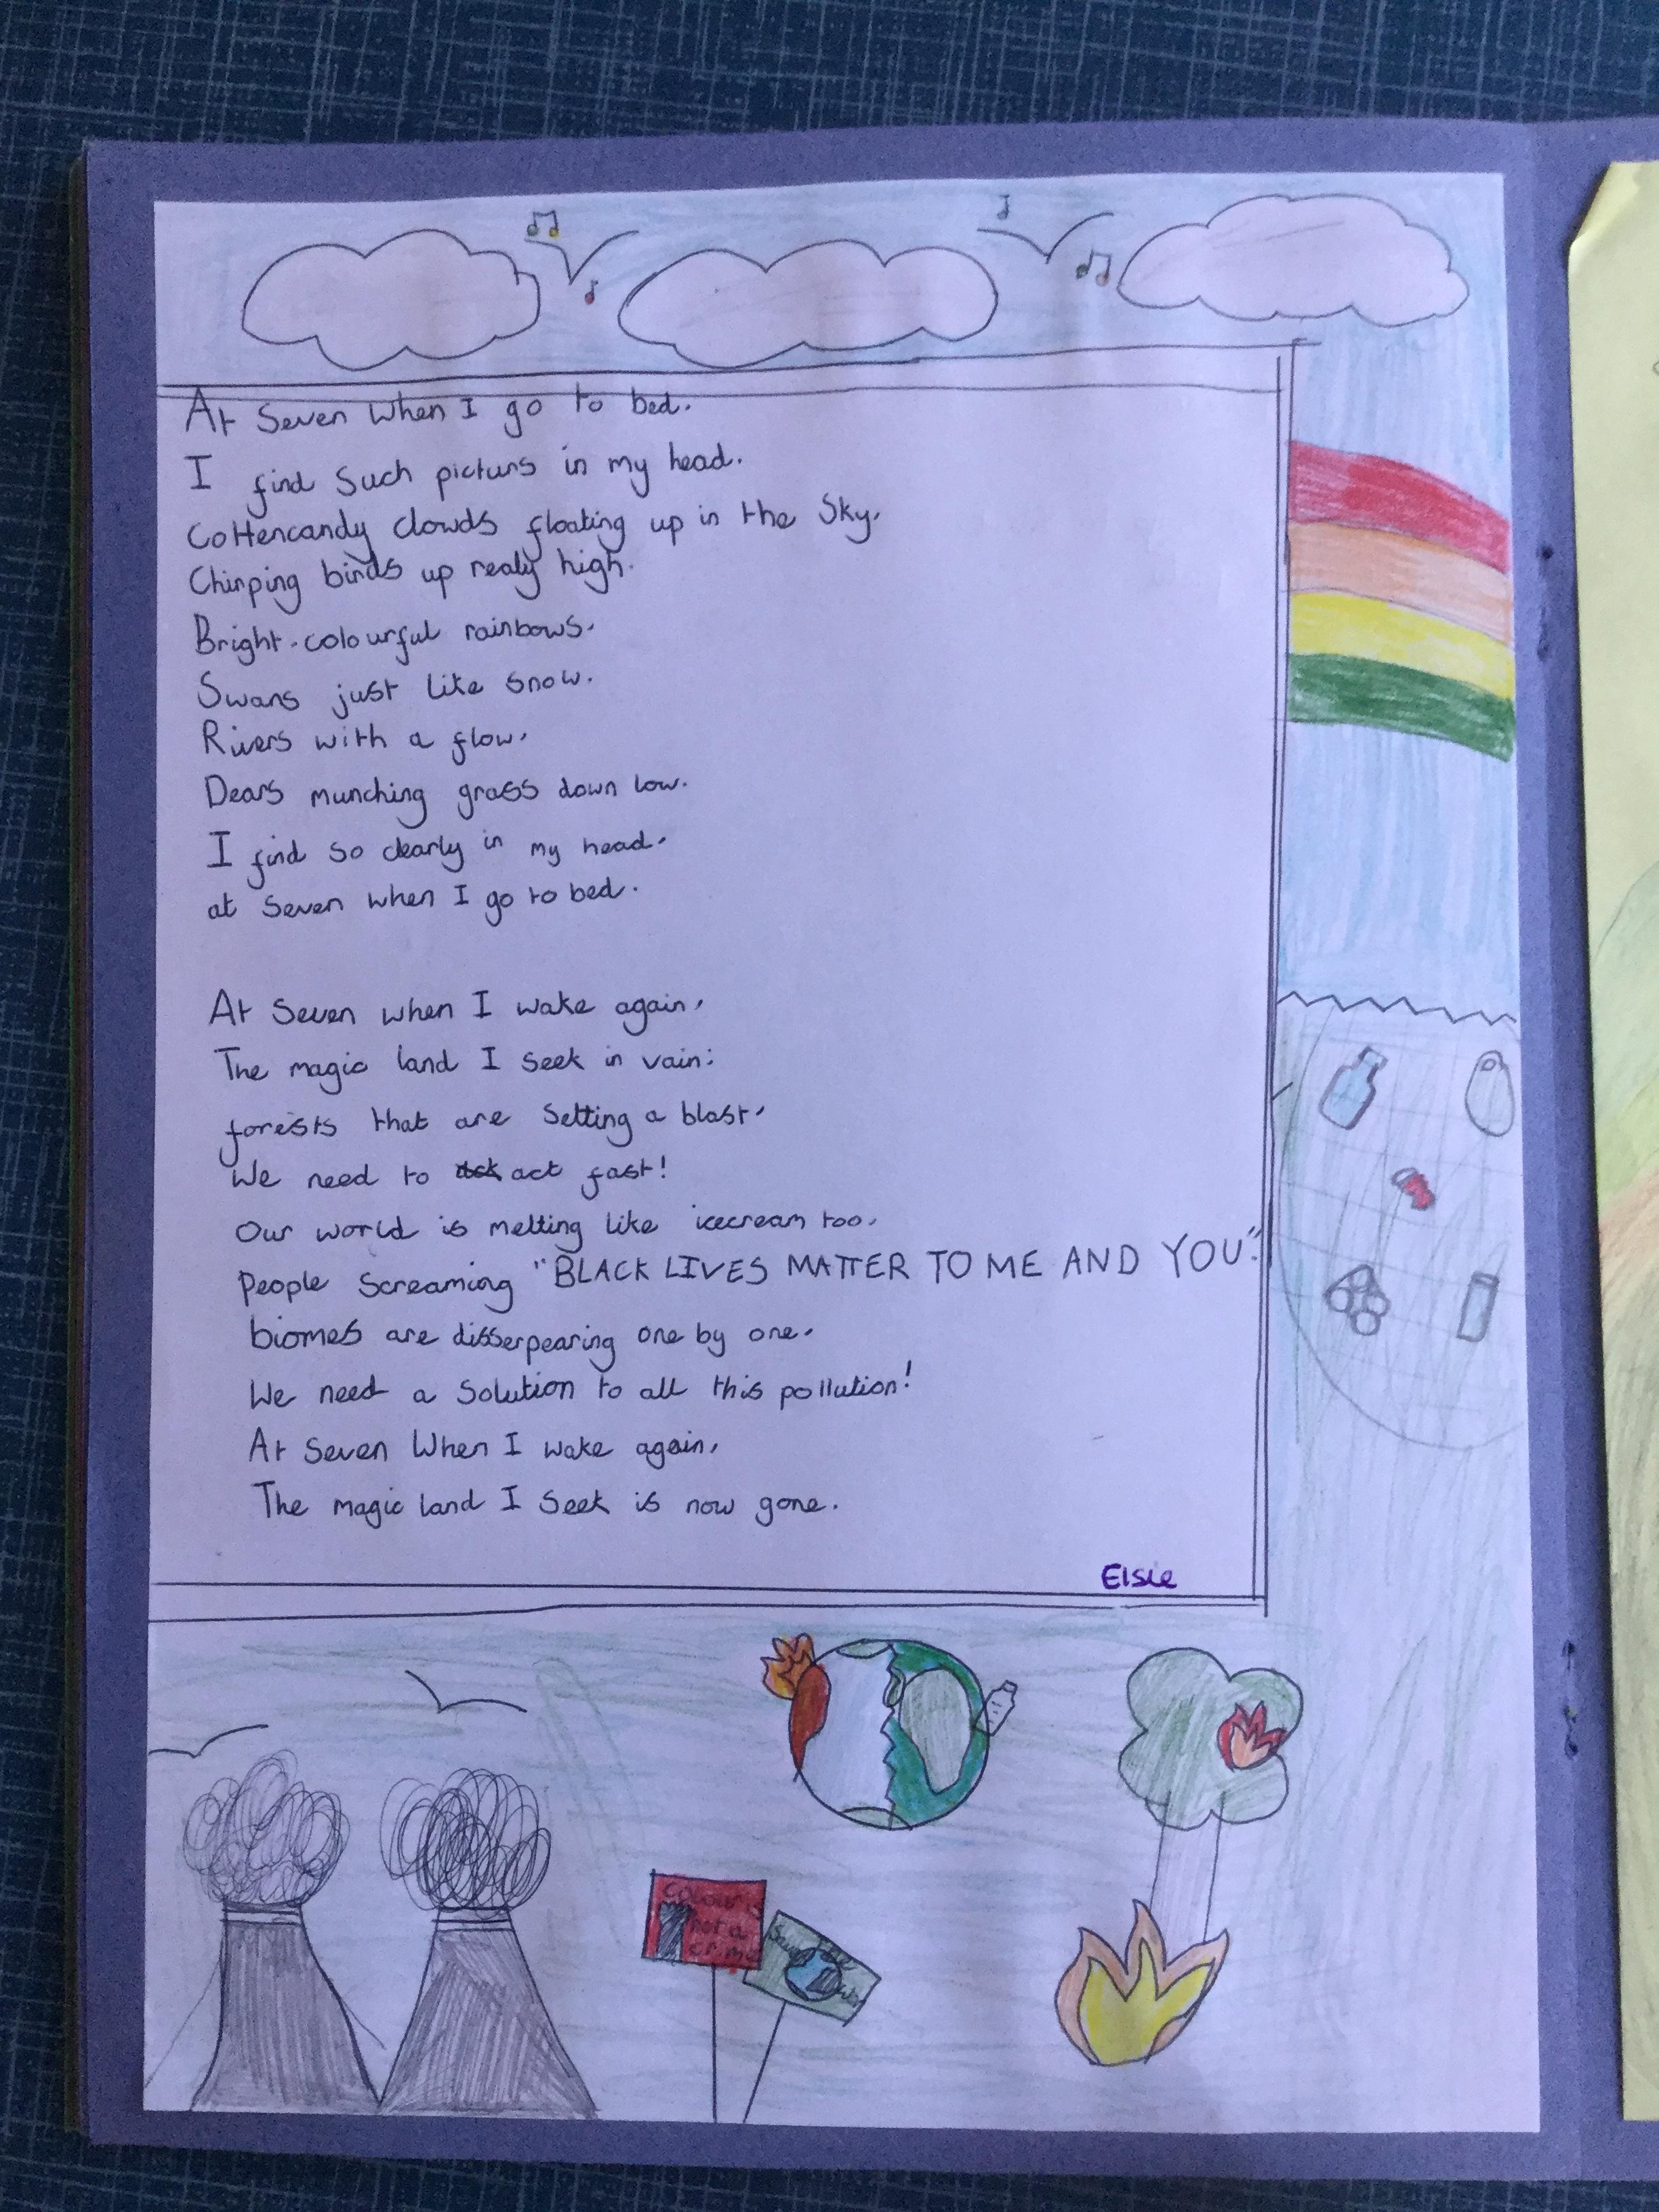 At Seven when I go to bed.
I find such picturs in my head.
Cottencandy clowds floating up in the Sky.
Chirping birds up realy high.
Bright-colourful rainbows.
Swans just like snow.
Rivers with a flow.
Dears munching grass down low.
I find so clearly in my head.
at Seven when I go to bed.
At Seven when I wake again,
The magic land I seek in vain:
forests that are setting a blast,
We need to act fast!
Our world is melting like icecream too.
People Screaming "BLACK LIVES MATTER TO ME AND YOU".
biomes are disserpearing one by one.
We need a solution to all this pollution!
At Seven When I wake again,
The magic land I seek is now gone.
Elsie
Colour is
not a
crime
Save the